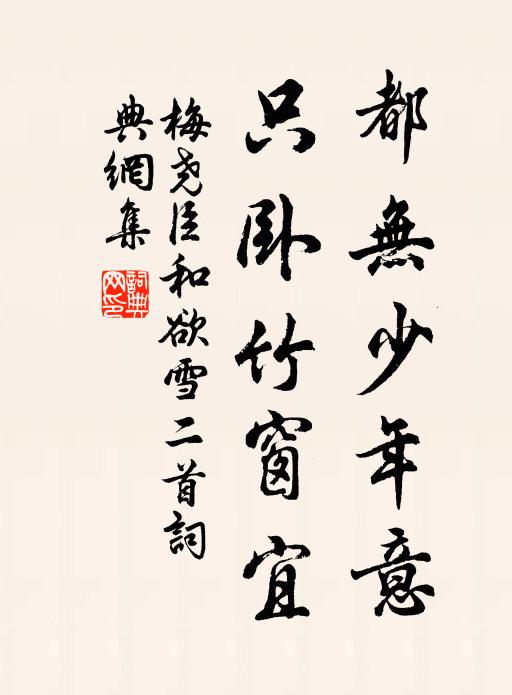 都無少年意
只卧竹窗宜
梅尧臣和欲雪二首詞
典網集
詞典
网印